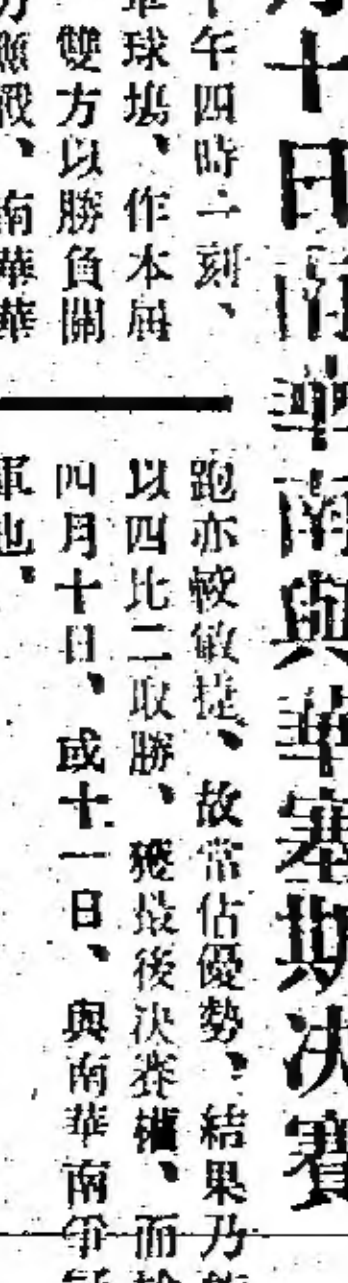 月十日南華南與華塞期決賽
午四時一刻、
球場、作本屆
雙方以勝負開
應戰、南華華
跑亦較敏捷、故常佔優勢、結果乃
以四比二取勝、獲最後決賽權、而
四月十日、或十一日、與南華南爭
軍也、